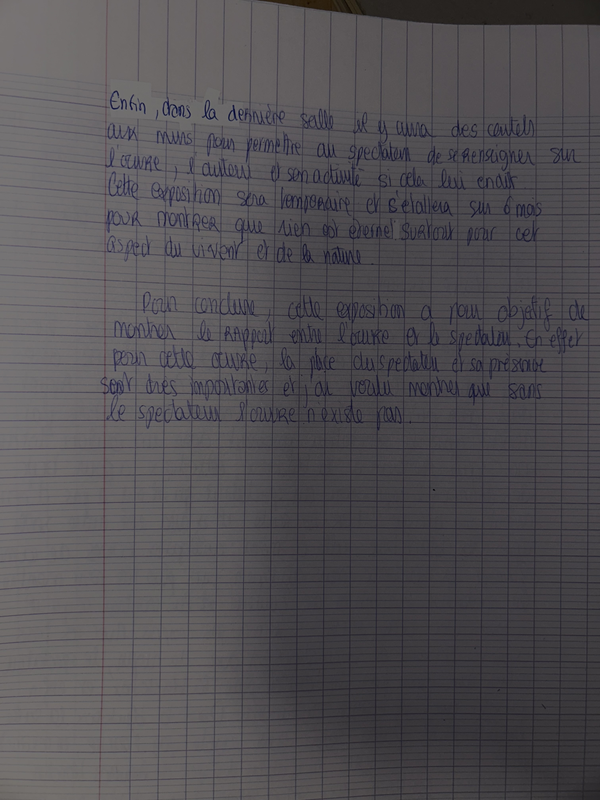 Enfin, dans la dernière salle il y aura des cartels
aux murs pour permettre au spectateur de se renseigner sur
l'œuvre, l'auteur et son activité si cela lui
Cette exposition sera temporaire et s'étalera sur 6 mois
pour montrer que rien est éternel surtout pour cet
aspect du vivent et de la nature.
Pour conclure, cette exposition a pour objetif de
montrer le rapport entre l'œuvre et le spectateur. En effet
pour cette œuvre, la place du spectateur et sa présence
sont très importantes et j'ai voulu montrer que sans
le spectateur l'œuvre n'existe pas.